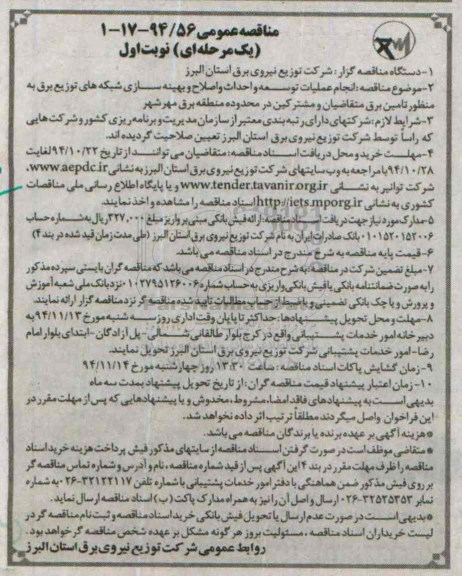 مناقصه عمومی ۹۴/۵۶-۱۷-۱
(یک مرحله ای) نوبت اول
۱-دستگاه مناقصه گزار: شرکت توزیع نیروی برق استان البرز
۲-موضوع مناقصه: انجام عملیات توسعه و احداث و اصلاح و بهینه سازی شبکه های توزیع برق به
منظور تامین برق متقاضیان و مشترکین در محدوده منطقه برق مهرشهر
۳-شرایط لازم: شرکتهای دارای رتبه بندی معتبر از سازمان مدیریت و برنامه ریزی کشور و شرکت هایی
که راساً توسط شرکت توزیع نیروی برق استان البرز تعیین صلاحیت گردیده اند.
۴-مهلت خرید و محل دریافت اسناد مناقصه: متقاضیان می توانند از تاریخ ۹۴/۱۰/۲۲ لغایت
۹۴/۱۰/۲۸ با مراجعه به وب سایتهای شرکت توزیع نیروی برق استان البرز به نشانی www.aepdc.ir،
شرکت توانیر به نشانی www.tender.tavanir.org.ir و یا پایگاه اطلاع رسانی ملی مناقصات
کشوری به نشانی http://iets.mporg.ir اسناد مناقصه را مشاهده و اخذ نمایند.
۵-مدارک مورد نیاز جهت دریافت اسناد مناقصه: ارائه فیش بانکی مبنی بر واریز مبلغ ۲۲۷،۰۰۰ ریال به شماره حساب
۰۱۰۱۵۲۰۱۵۲۰۰۶ بانک صادرات ایران به نام شرکت توزیع نیروی برق استان البرز (طی مدت زمان قید شده در بند ۴)
۶-قیمت پایه مناقصه به شرح مندرج در اسناد مناقصه می باشد.
۷-مبلغ تضمین شرکت در مناقصه به شرح مندرج در اسناد مناقصه می باشد که مناقصه گران بایستی سپرده مذکور
را به صورت ضمانتنامه بانکی یا فیش بانکی واریزی به حساب شماره ۱۰۲۷۹۵۱۲۶۰۰۶ نزد بانک ملی شعبه آموزش
و پرورش و یا چک بانکی تضمینی و یا ضبط از حساب مطالبات تأیید شده مناقصه گر نزد مناقصه گزار ارائه نمایند.
۸-مهلت و محل تحویل پیشنهادها: حداکثر تا پایان وقت اداری روز سه شنبه مورخ ۹۴/۱۱/۱۳ به
دبیرخانه امور خدمات پشتیبانی واقع در کرج بلوار طالقانی شمالی-پل آزادگان-ابتدای بلوار امام
رضا-امور خدمات پشتیبانی شرکت توزیع نیروی برق استان البرز تحویل نمایند.
۹-زمان گشایش پاکات اسناد مناقصه: ساعت ۱۳:۳۰ روز چهارشنبه مورخ ۹۴/۱۱/۱۴
۱۰-زمان اعتبار پیشنهاد قیمت مناقصه گران: از تاریخ تحویل پیشنهاد بمدت سه ماه
بدیهی است به پیشنهادهای فاقد امضاء، مشروط، مخدوش و یا پیشنهادهایی که پس از مهلت مقرر در
این فراخوان واصل میگردند مطلقاً ترتیب اثر داده نخواهد شد.
*هزینه آگهی بر عهده برنده یا برندگان مناقصه می باشد.
*متقاضی موظف است در صورت گرفتن اسناد مناقصه از سایتهای مذکور فیش پرداخت هزینه خرید اسناد
مناقصه را ظرف مهلت مقرر در بند ۴ این آگهی پس از قید شماره مناقصه، نام و آدرس و شماره تماس مناقصه گر
بر روی فیش مذکور ضمن هماهنگی با دفتر امور خدمات پشتیبانی با شماره تلفن ۳۲۱۲۲۱۱۷-۰۲۶ به شماره
نمابر ۳۲۵۲۵۳۵۳-۰۲۶ ارسال و اصل آن را نیز به همراه مدارک پاکت (ب) اسناد مناقصه ارسال نماید.
*بدیهی است در صورت عدم ارسال یا تحویل فیش بانکی خرید اسناد مناقصه و ثبت نام مناقصه گر در
لیست خریداران اسناد مناقصه، مسئولیت بروز هر گونه مشکل بر عهده شخص مناقصه گر خواهد بود.
روابط عمومی شرکت توزیع نیروی برق استان البرز